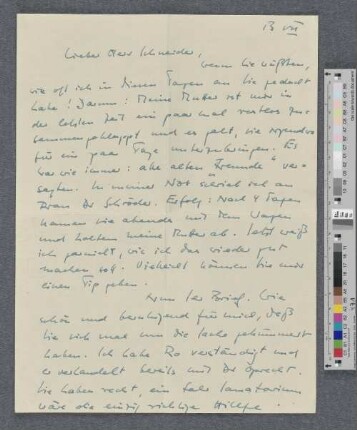 13 VII
Lieber Herr Schneider,
wenn Sie wüßten,
wie oft ich in diesen Tagen an Sie gedacht
habe! Darum: Meine Mutter ist mir in
der letzten Zeit ein paar mal restlos zu-
sammengeklappt und es galt, sie irgendwo
für ein paar Tage unterzubringen. Es
war wie immer: alle alten "Freunde" ver-
sagten. In meiner Not schrieb ich an
Frau Dr Schröder. Erfolg: Nach 4 Tagen
kamen sie abends mit dem Wagen
und holten meine Mutter ab. Jetzt weiß
ich garnicht, wie ich das wieder gut
machen soll. Vielleicht können Sie mir
einen Tip geben.
Nun Ihr Brief. Wie
schön und beruhigend für mich, daß
Sie sich mal um die Sache gekümmert
haben. Ich habe Ro verständigt und
er verhandelt bereits mit Dr Specht.
Sie haben recht, ein Sanatorium
wäre die einzig richtige Hilfe.